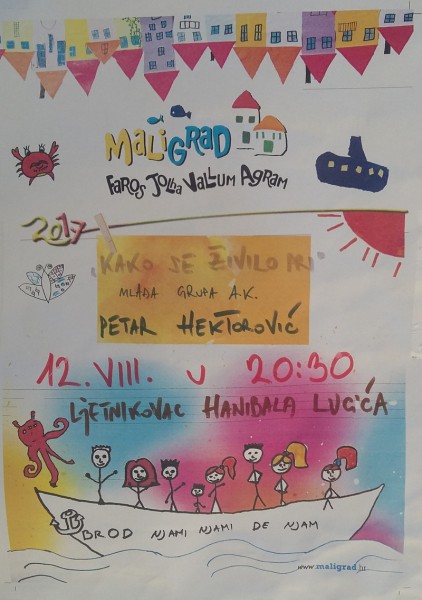 MALi GRAD
FAROS JOLLA VALLUM AGRAM
2017
„KAKO SE ŽIVILO PRI"
MLADA GRUPA A.K.
PETAR HEKTOROVIĆ
12. VIII. u 20:30
LJETNIKOVAC HANIBALA LUCIĆA
BROD NJAMI NJAMI DE NJAM
www.maligrad.hr